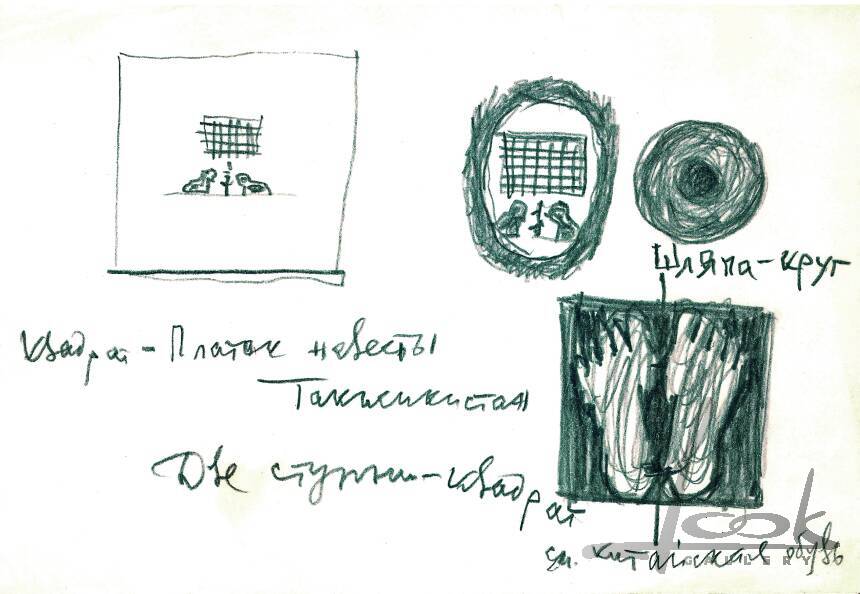 Шляпа-круг
Квадрат - Платок невесты
Таджикистан
Две ступни-квадрат
см. китайская обувь
look
GALLERY